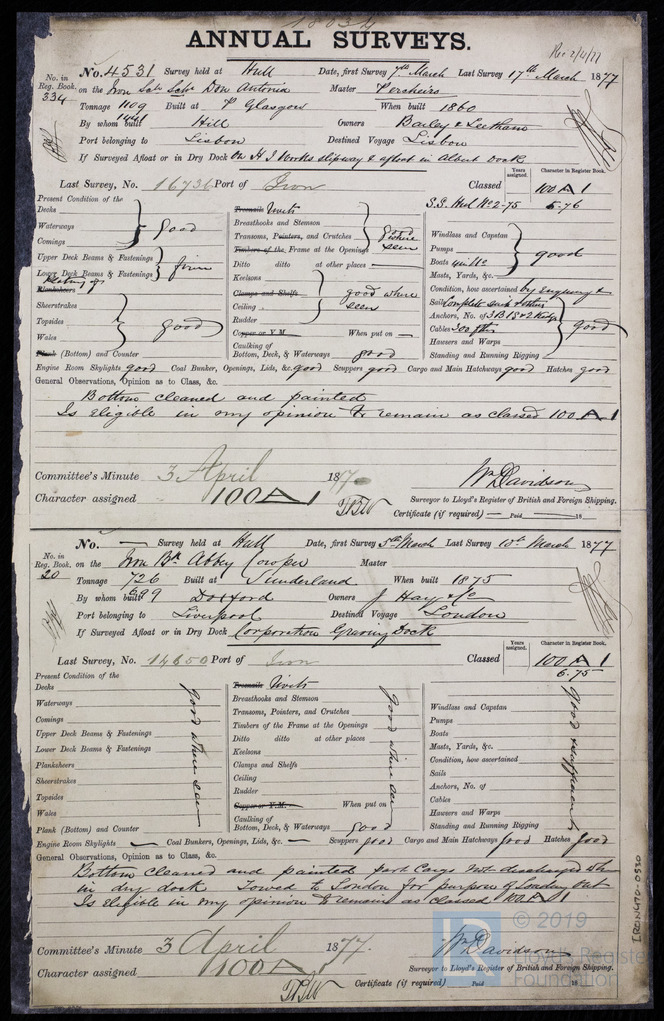 18034
ANNUAL SURVEYS.
Rec 2/4/77
No. in Reg. Book. 334
No. 4531 Survey held at Hull Date, first Survey 7th March Last Survey 17th March 1877
on the Iron Scw Schr Don Antonia Master
Tonnage 1109 Built at P Glasgow When built 1860
By whom built Hill Owners Bailey & Leetham
Port belonging to Lisbon Destined Voyage Lisbon
If Surveyed Afloat or in Dry Dock slipway & afloat in Albert Dock
Last Survey, No. 16736 Port of Iron Classed
Years assigned. Character in Register Book.
100 A 1
S.S. Hul No 2-75 5-76
Present Condition of the
Decks
Waterways
Comings
good
Upper Deck Beams & Fastenings
Lower Deck Beams & Fastenings
firm
Plating of
Planksheers
Sheerstrakes
Topsides
Wales
good
Plank (Bottom) and Counter
Treenails Rivets
Breasthooks and Stemson
Transoms, Pointers, and Crutches
Timbers of the Frame at the Openings
seen
Ditto ditto at other places
Keelsons
Clamps and Shelfs
Ceiling
Rudder
good where seen
Copper or Y.M. When put on
Caulking of
Bottom, Deck, & Waterways good
Windlass and Capstan
Pumps
Boats
Masts, Yards, &c.
good
Condition, how ascertained by enquiry &
Sails Complete
Anchors, No. of 3B 1S & 2 Kedge
Cables 300 fths
Hawsers and Warps
Standing and Running Rigging
good
Engine Room Skylights good Coal Bunker, Openings, Lids, &c. good Scuppers good Cargo and Main Hatchways good Hatches good
General Observations, Opinion as to Class, &c.
Bottom cleaned and painted
Is eligible in my opinion to remain as classed 100 A 1
Committee's Minute 3 April 187
Character assigned 100 A 1
Wm Davidson
Surveyor to Lloyd's Register of British and Foreign Shipping.
Certificate (if required) Paid 18
No. in Reg. Book. 20
No. — Survey held at Hull Date, first Survey 5th March Last Survey 10th March 1877
on the Iron Bk Abby Cowper Master
Tonnage 726 Built at Sunderland When built 1875
699
By whom built Doxford Owners J Hay & Co
Port belonging to Liverpool Destined Voyage London
If Surveyed Afloat or in Dry Dock Corporation Graving Dock
Last Survey, No. 14650 Port of Iron Classed
Years assigned. Character in Register Book.
100 A 1
6.75
Present Condition of the
Decks
Waterways
Comings
Upper Deck Beams & Fastenings
Lower Deck Beams & Fastenings
Planksheers
Sheerstrakes
Topsides
Wales
Plank (Bottom) and Counter
good where seen
Treenails Rivets
Breasthooks and Stemson
Transoms, Pointers, and Crutches
Timbers of the Frame at the Openings
Ditto ditto at other places
Keelsons
Clamps and Shelfs
Ceiling
Rudder
Copper or Y.M. When put on
Caulking of
Bottom, Deck, & Waterways good
good where seen
Windlass and Capstan
Pumps
Boats
Masts, Yards, &c.
Condition, how ascertained
Sails
Anchors, No. of
Cables
Hawsers and Warps
Standing and Running Rigging
Engine Room Skylights — Coal Bunkers, Openings, Lids, &c. — Scuppers good Cargo and Main Hatchways good Hatches good
General Observations, Opinion as to Class, &c.
Bottom cleaned and painted part Cargo not discharged when
in dry dock Towed to London for purpose of loading but
Is eligible in my opinion to remain as classed 100 A 1
Committee's Minute 3 April 1877.
Character assigned 100 A 1
Wm Davidson
Surveyor to Lloyd's Register of British and Foreign Shipping.
Certificate (if required) Paid 18
IRON470-0530
LR © 2019
Lloyd's Register
Foundation